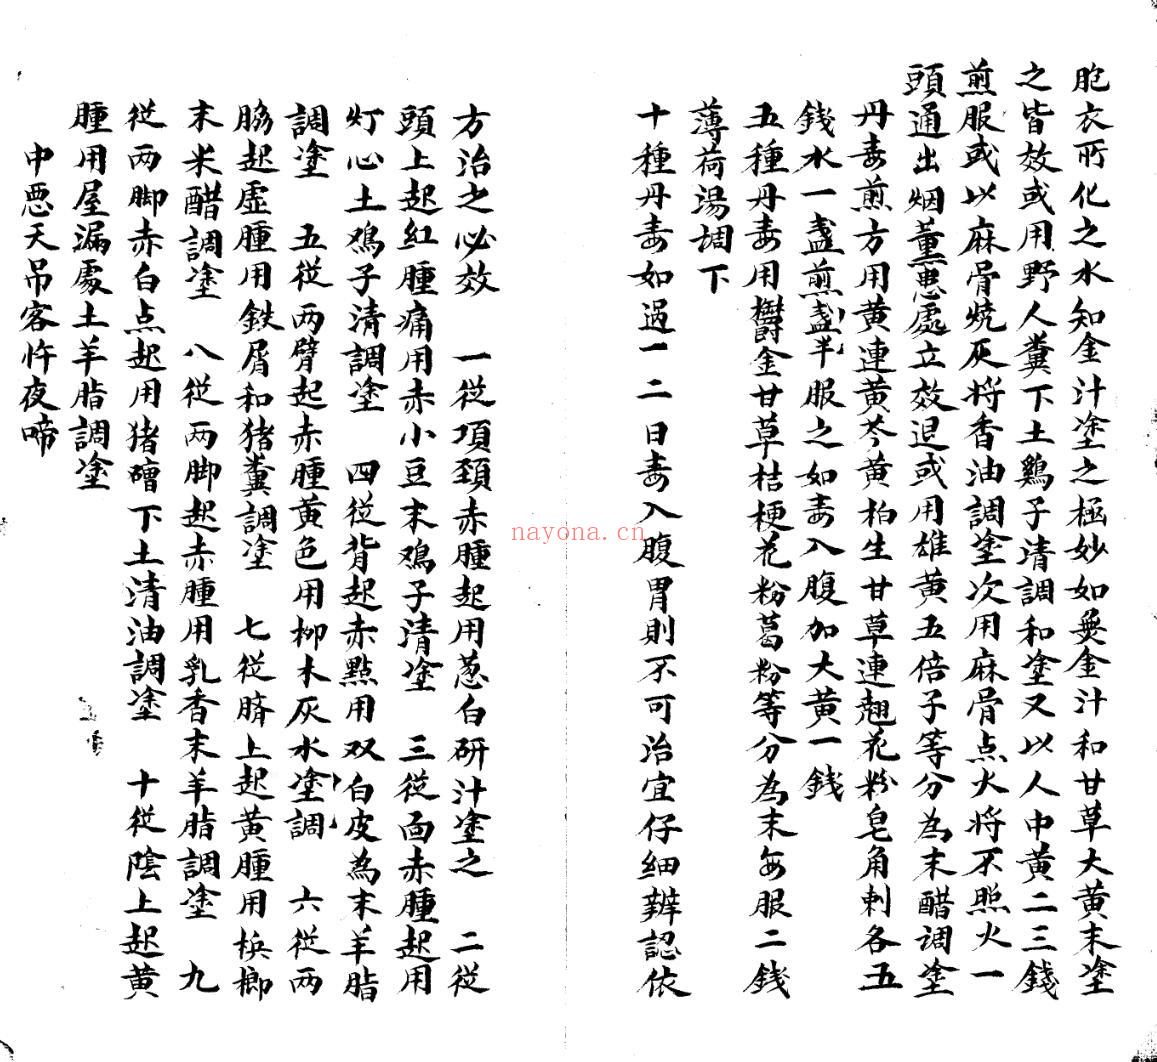 胞衣所化之水知金汁塗之極妙如無金汁和甘草大黄末塗
之皆效或用野人糞下土鷄子清調和塗又以人中黄二三錢
煎服或以麻骨燒灰将香油調塗次用麻骨点火将不照火一
頭通出烟薰患處立效退或用雄黄五倍子等分為末醋调塗
丹毒煎方用黄連黄芩黄柏生甘草連翹花粉皂角刺各五
錢水一盞煎盞半服之如毒入腹加大黄一錢
五種丹毒用欝金甘草桔梗花粉葛粉等分為末每服二錢
薄荷湯調下
十種丹毒如過一二日毒入腹胃則不可治宜仔細辨認依
方治之必效　一從項頸赤腫起用葱白研汁塗之　二從
頭上起紅腫痛用赤小豆末鸡子清塗　三從面赤腫起用
灯心土鸡子清調塗　四從背起赤點用双白皮為末羊脂
調塗　五從两臂起赤腫黄色用柳木灰水塗調　六從两
脇起虛腫用鉄屑和猪糞調塗　七從臍上起黄腫用槟榔
末米醋調塗　八從两脚起赤腫用乳香末羊脂調塗　九
從两脚赤白点起用猪槽下土清油調塗　十從陰上起黄
腫用屋漏處土羊脂調塗
中惡天吊客忤夜啼
nayona.cn